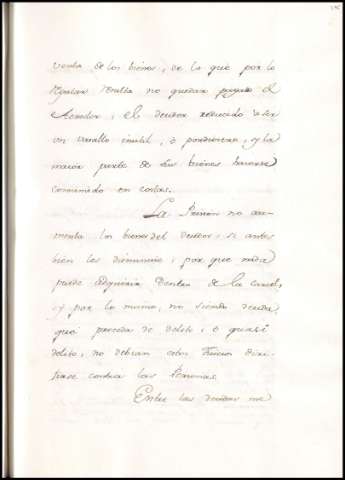 venta de los bienes, de la que por lo
regular resulta no quedar pagado el
Acredor, el deudor reducido a ser
un vasallo inutil, o pordiosero, y la
maior parte de sus bienes haverse
consumido en costas.
La Prision no au-
menta los bienes del deudor, si antes
bien los disminuie, por que nada
puede adquirir dentro de la carcel,
y por lo mismo, no siendo deuda,
que proceda de delito, o quasi
delito, no debian estos Juicios diri-
girse contra las Personas.
Entre las deudas me